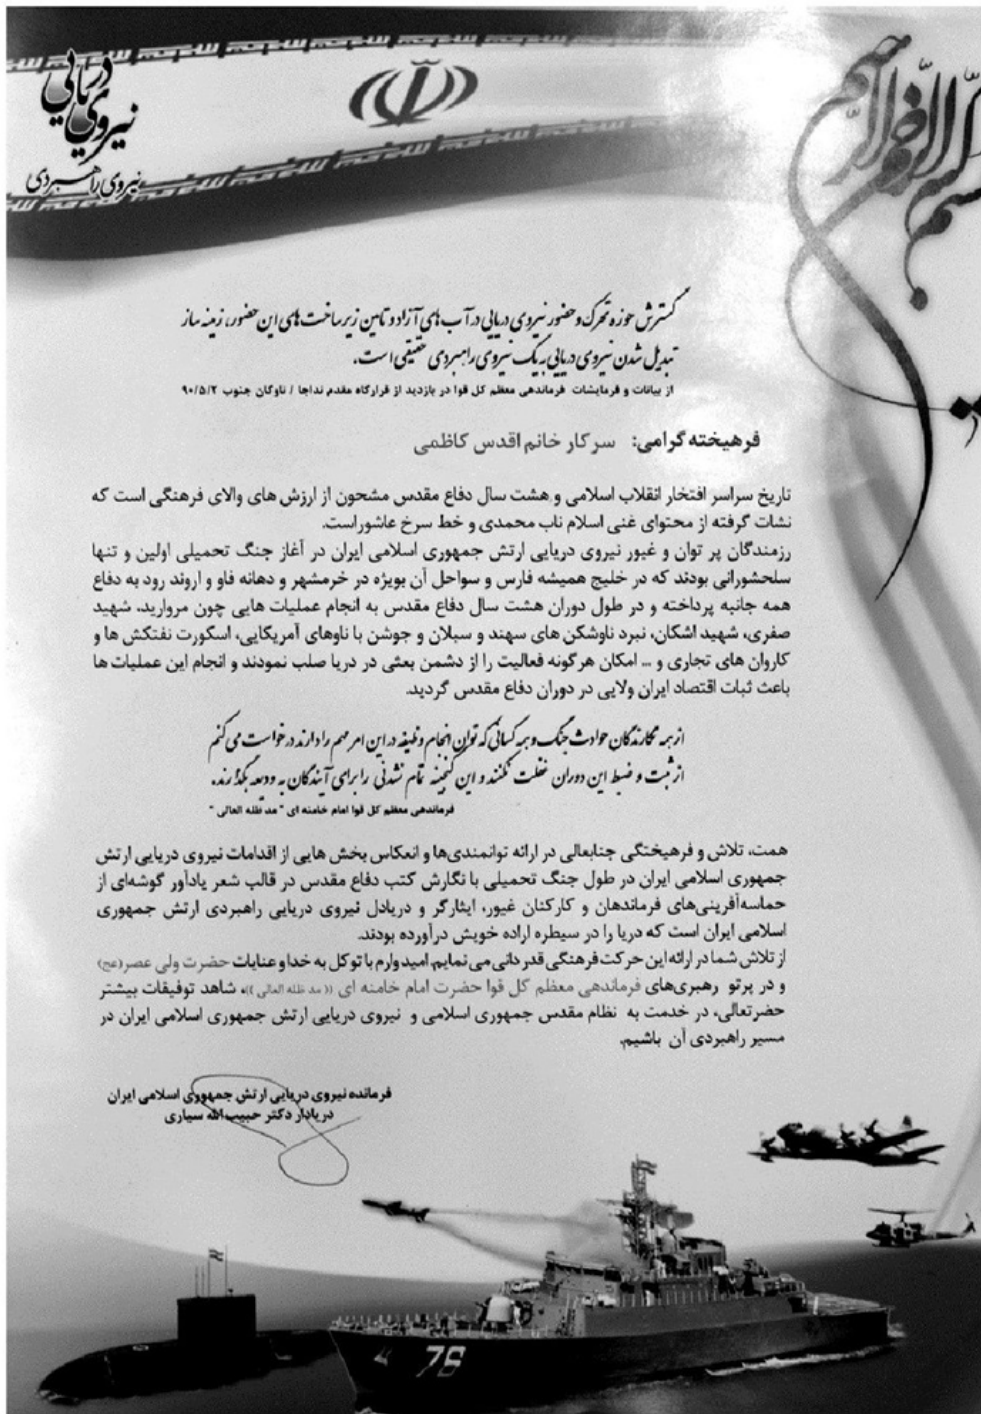 نیروی
دریایی
نیروی راهبردی
بسم الله الرحمن الرحیم
گسترش حوزه تحرک و حضور نیروی دریایی در آب های آزاد و تامین زیرساخت های این حضور، زمینه ساز
تبدیل شدن نیروی دریایی به یک نیروی راهبردی حقیقی است.
از بیانات و فرمایشات فرماندهی معظم کل قوا در بازدید از قرارگاه مقدم نداجا / ناوگان جنوب ۹۰/۵/۲
فرهیخته گرامی: سرکار خانم اقدس کاظمی
تاریخ سراسر افتخار انقلاب اسلامی و هشت سال دفاع مقدس مشحون از ارزش های والای فرهنگی است که
نشات گرفته از محتوای غنی اسلام ناب محمدی و خط سرخ عاشوراست.
رزمندگان پر توان و غیور نیروی دریایی ارتش جمهوری اسلامی ایران در آغاز جنگ تحمیلی اولین و تنها
سلحشورانی بودند که در خلیج همیشه فارس و سواحل آن بویژه در خرمشهر و دهانه فاو و اروند رود به دفاع
همه جانبه پرداخته و در طول دوران هشت سال دفاع مقدس به انجام عملیات هایی چون مروارید، شهید
صفری، شهید اشکان، نبرد ناوشکن های سهند و سبلان و جوشن با ناوهای آمریکایی، اسکورت نفتکش ها و
کاروان های تجاری و ... امکان هرگونه فعالیت را از دشمن بعثی در دریا صلب نمودند و انجام این عملیات ها
باعث ثبات اقتصاد ایران ولایی در دوران دفاع مقدس گردید.
از همه نگارندگان حوادث جنگ و همه کسانی که توان انجام وظیفه در این امر مهم را دارند درخواست می کنم
از ثبت و ضبط این دوران غفلت نکنند و این گنجینه تمام نشدنی را برای آیندگان به ودیعه بگذارند.
فرماندهی معظم کل قوا امام خامنه ای " مد ظله العالی "
همت، تلاش و فرهیختگی جنابعالی در ارائه توانمندی‌ها و انعکاس بخش هایی از اقدامات نیروی دریایی ارتش
جمهوری اسلامی ایران در طول جنگ تحمیلی با نگارش کتب دفاع مقدس در قالب شعر یادآور گوشه‌ای از
حماسه‌آفرینی‌های فرماندهان و کارکنان غیور، ایثارگر و دریادل نیروی دریایی راهبردی ارتش جمهوری
اسلامی ایران است که دریا را در سیطره اراده خویش درآورده بودند.
از تلاش شما در ارائه این حرکت فرهنگی قدردانی می نمایم. امیدوارم با توکل به خدا و عنایات حضرت ولی عصر(عج)
و در پرتو رهبری‌های فرماندهی معظم کل قوا حضرت امام خامنه ای (( مد ظله العالی ))، شاهد توفیقات بیشتر
حضرتعالی، در خدمت به نظام مقدس جمهوری اسلامی و نیروی دریایی ارتش جمهوری اسلامی ایران در
مسیر راهبردی آن باشیم.
فرمانده نیروی دریایی ارتش جمهوری اسلامی ایران
دریادار دکتر حبیب الله سیاری
76